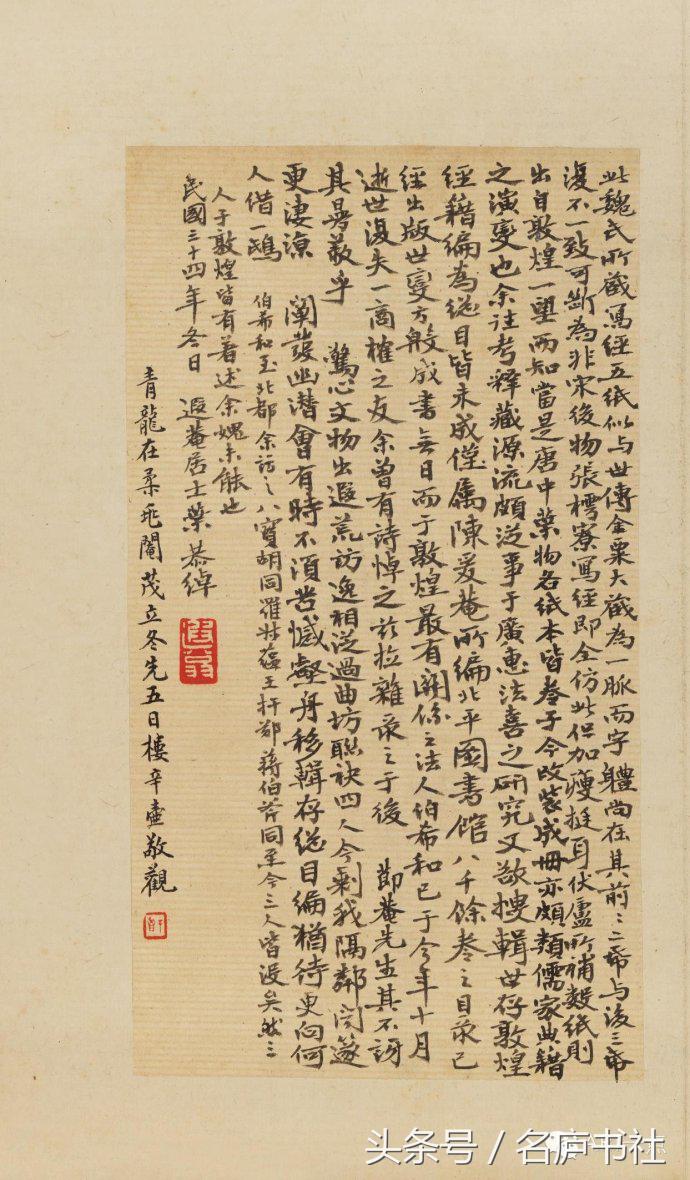 此魏氏所藏寫經五紙似与世傳金粟大藏為一脈而字體尚在其前〻二帋与後三帋
復不一致可斷為非宋後物張樗寮寫經即全仿此但加瘦挺耳伏廬所補數紙則
出自敦煌一望而知當是唐中葉物各紙本皆卷子今改裝成冊亦頗類儒家典籍
之演變也余往考釋藏源流頗從事于廣惠法喜之研究又欲搜輯世存敦煌
經籍編為總目皆未成僅屬陳爰菴所編北平圖書館八千餘卷之目录已
經出版世變方殷成書無日而于敦煌最有關係之法人伯希和已于今年十月
逝世復失一商榷之友余曾有詩悼之茲拉雜录之于後 即菴先生其不訝
其曼羨乎 驚心文物出遐荒訪逸相從過曲坊聯袂四人今剩我隔鄰聞篴
更淒涼 闡發幽潛會有時不須苦憾壑舟移輯存總目編猶待更向何
人借一鴟 伯希和至北都余訪之八寶胡同羅叔蘊王扞鄭蔣伯斧同至今三人皆沒矣然三
人于敦煌皆有著述余媿未能也
民國三十四年冬日 遐菴居士葉恭綽
青龍在柔兆閹茂立冬先五日樓辛壺敬觀
头条号 / 名庐书社